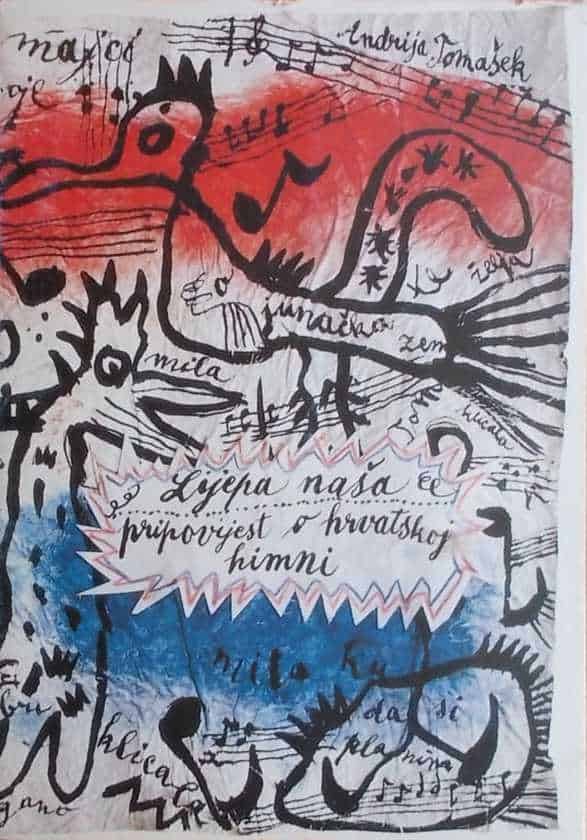 Andrija Tomašek
oje
junačka
zem
želja
mila
Lijepa naša
pripovijest o hrvatskoj
himni
mila Ku
da si
planina
klicala
gano